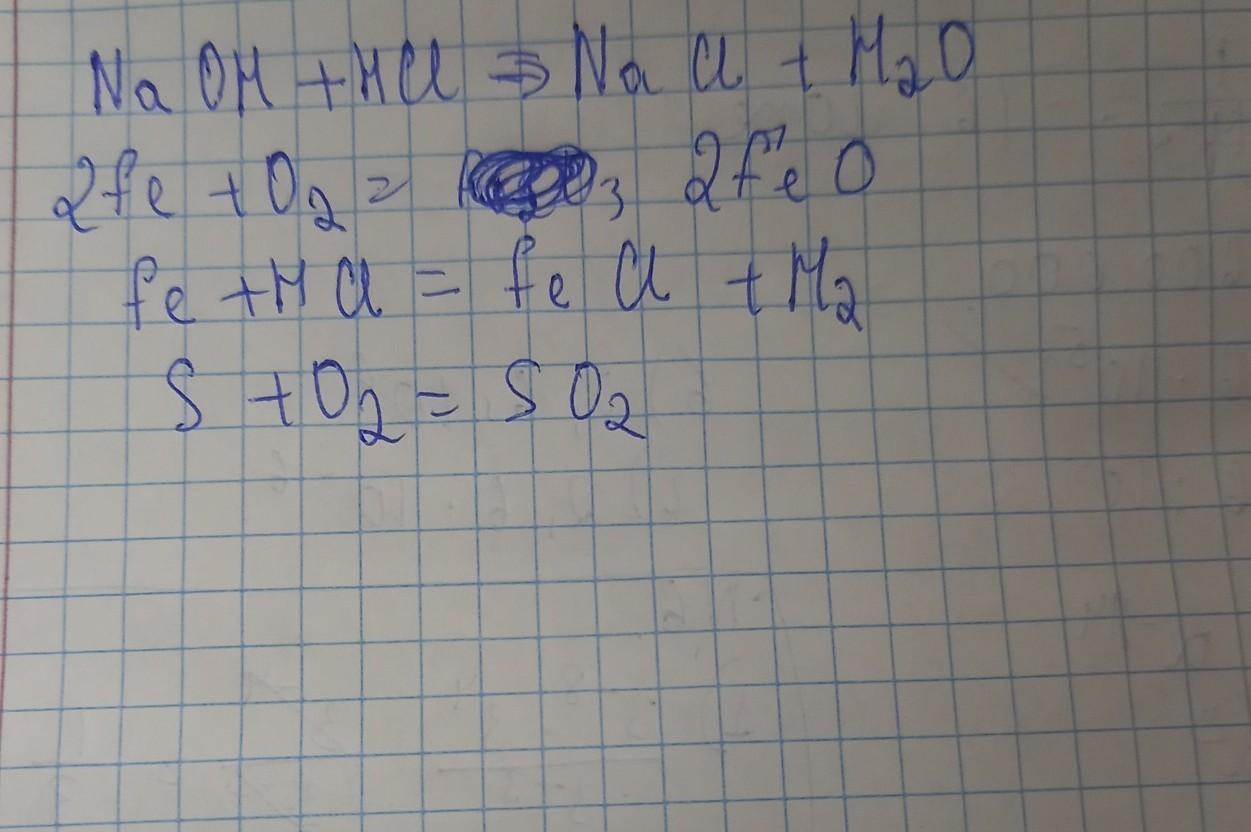 NaOH + HCl ⇒ NaCl + H₂O
2fe + O₂ = 3 2feO
fe + HCl = feCl + H₂
S + O₂ = SO₂